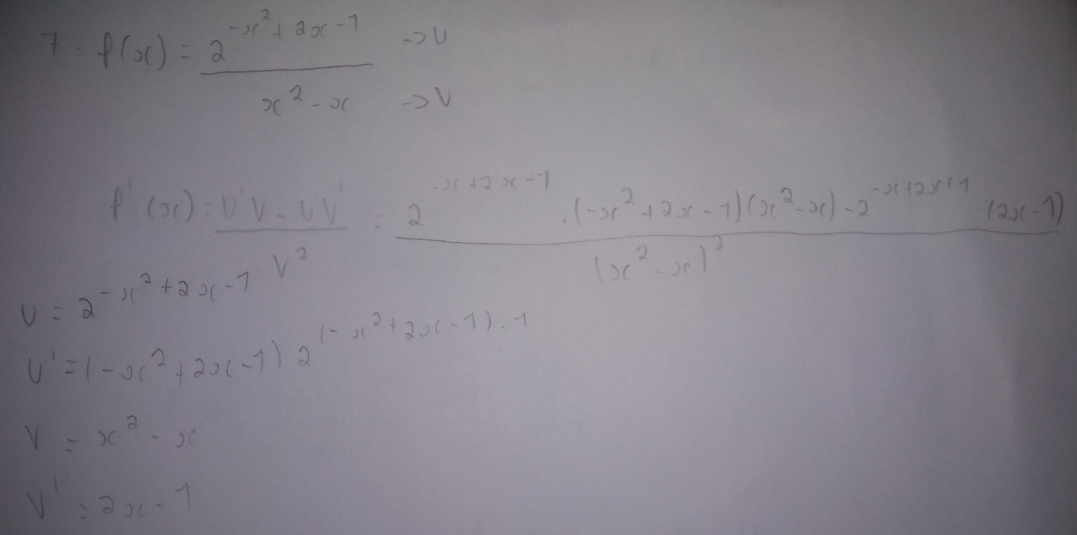 7. f(x) = 2^(-x² + 2x - 1) / (x² - x) -> U -> V
f'(x) = (U'V - UV') / V² = (2^(-x+2x-1) . (-x²+2x-1)(x²-x) - 2^(-x+2x+1) (2x-1)) / (x²-x)²
U = 2^(-x²+2x-1)
U' = (-x²+2x-1) 2^((-x²+2x-1)-1)
V = x² - x
V' = 2x-1